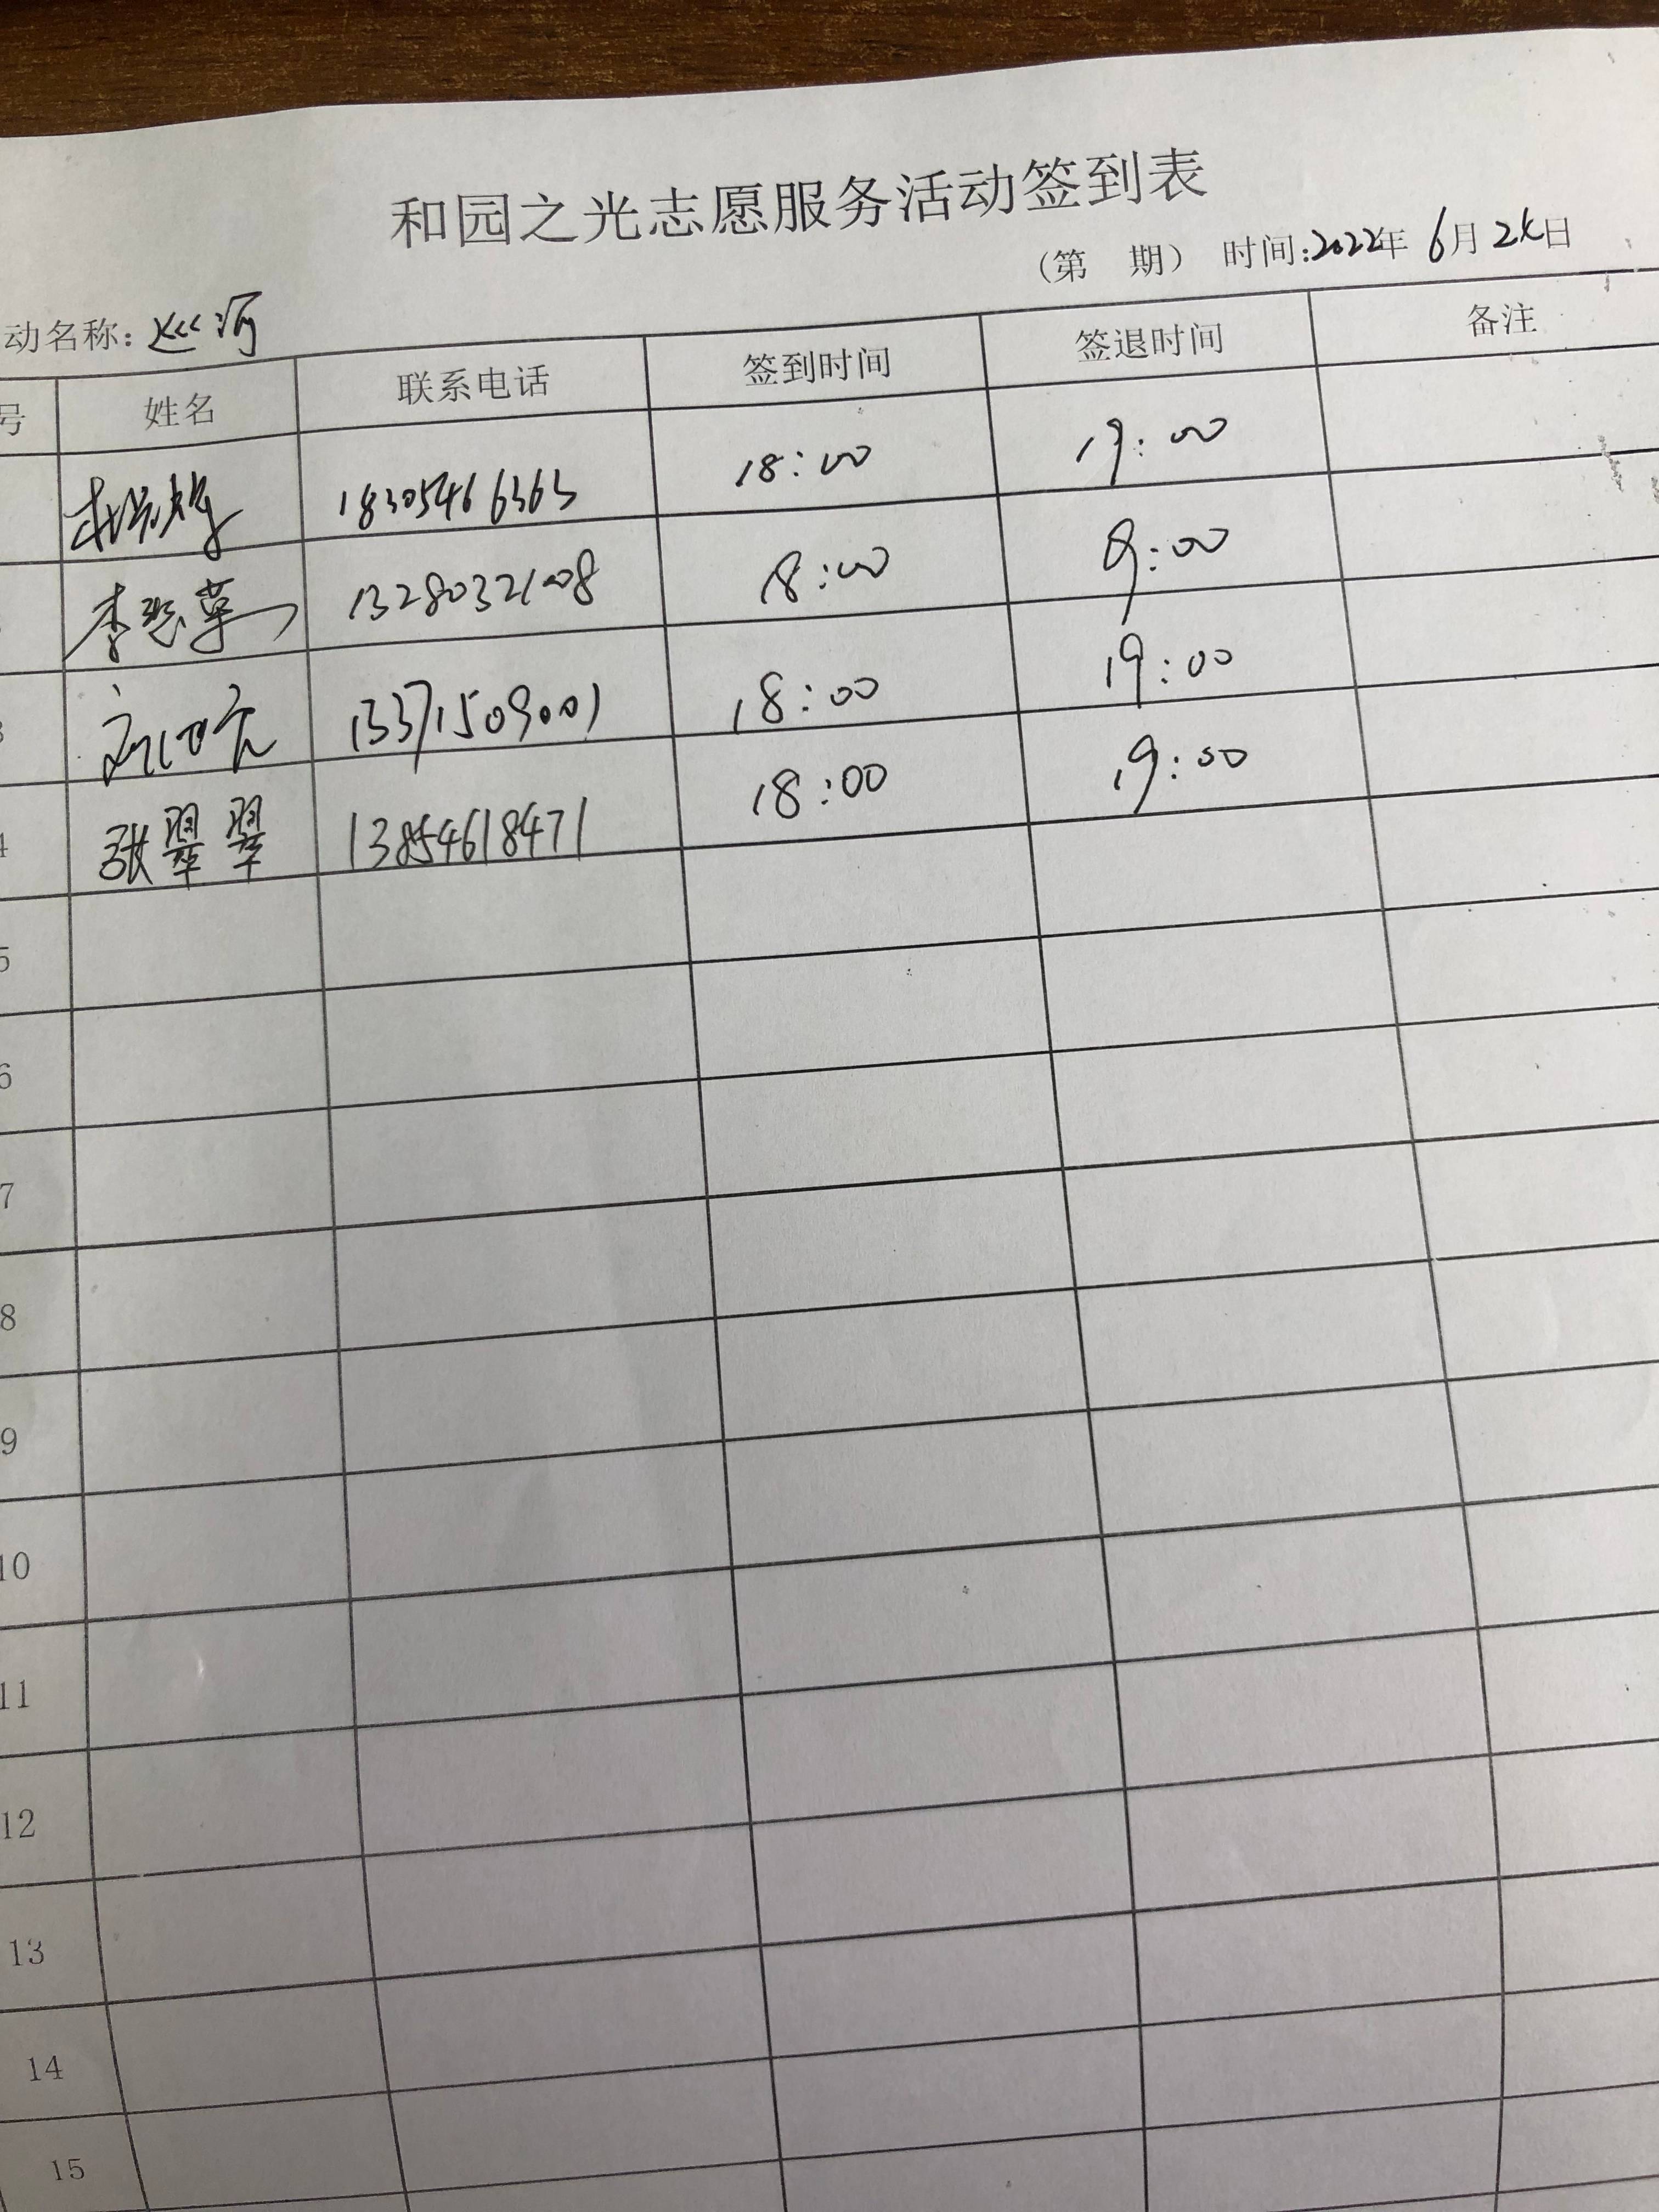 和园之光志愿服务活动签到表
(第 期) 时间:2022年6月24日
动名称: 巡河
号 姓名 联系电话 签到时间 签退时间 备注
18305466363 18:00 19:00
李 13280321008 18:00 9:00
13371509001 18:00 19:00
4 张翠翠 13854618471 18:00 19:00
5
6
7
8
9
10
11
12
13
14
15